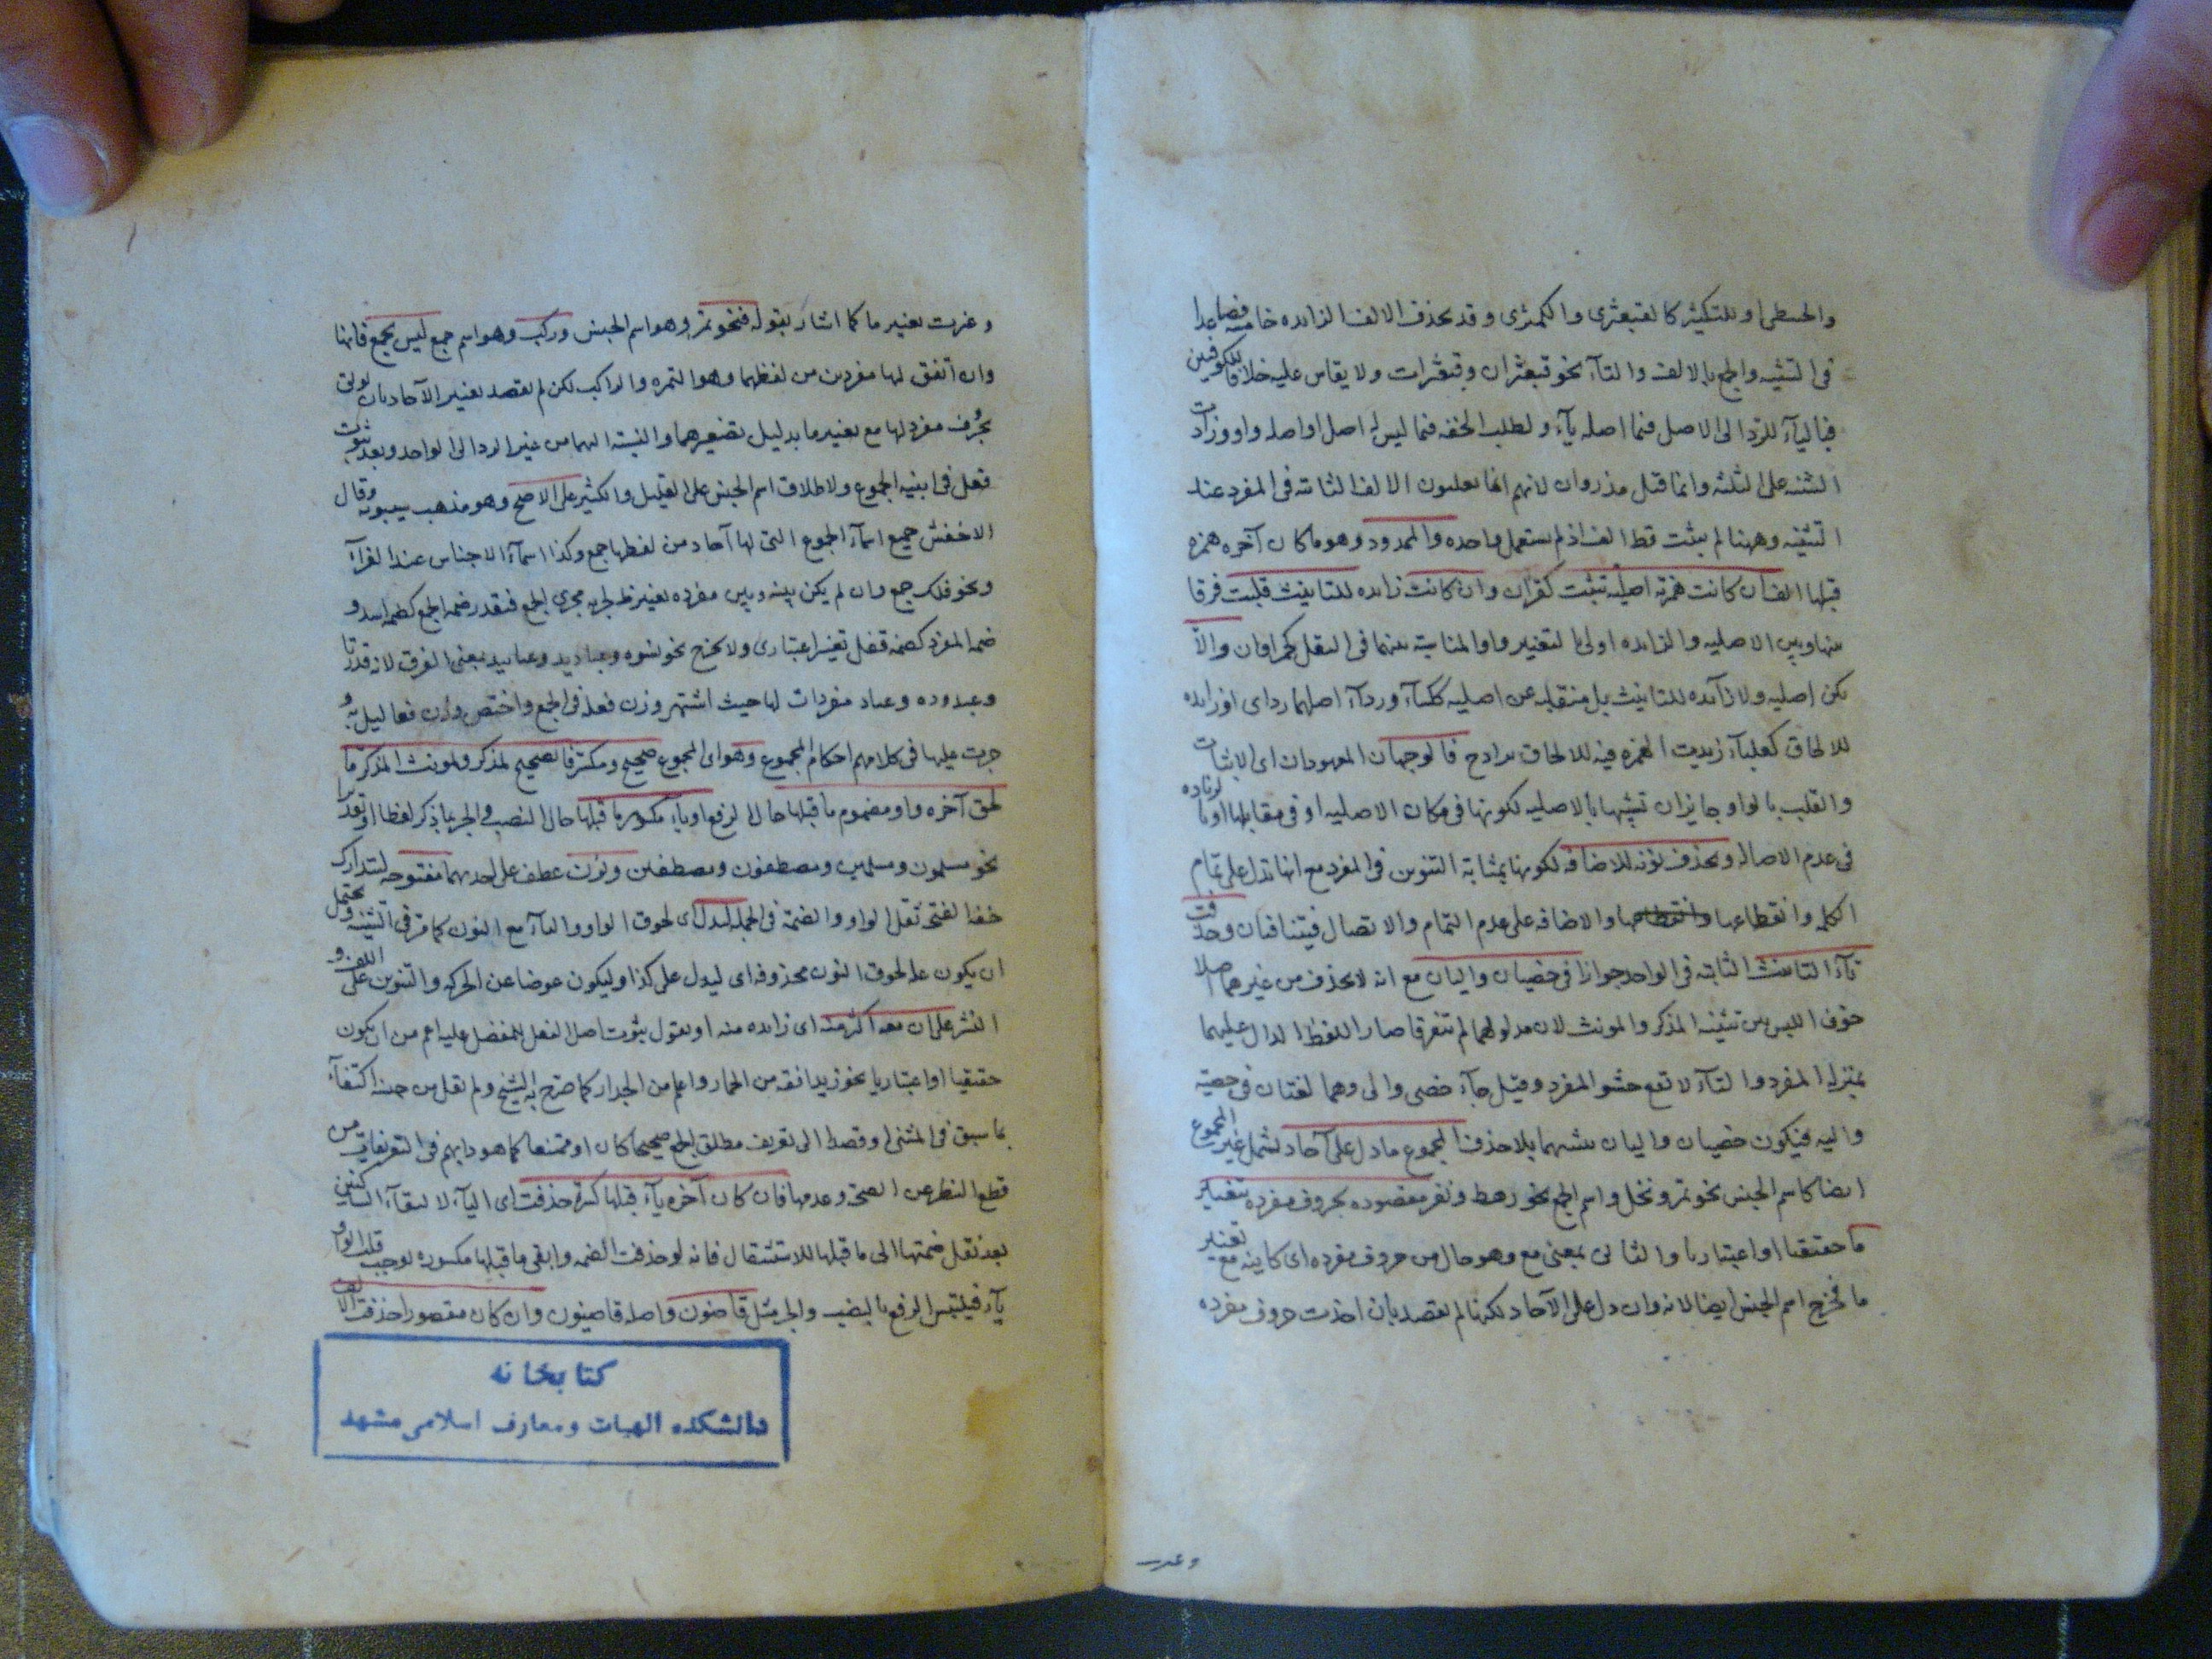 والحبنطى او للتكثير كالقبعثرى والكمثرى وقد يحذف الالف الزايده خامسة فصاعدا
فى التثنيه والجمع بالالف والتآء نحو قبعثران وقبعثرات ولا يقاس عليه خلافا للكوفيين
فباليآء للرد الى الاصل فيما اصله يآء ولطلب الخفه فيما ليس له اصل او اصله واو وزادت
الثنيه على الثلثه وانما قيل مذروان لانهم انما يقلبون الالف الثابته فى المفرد عند
التثنيه وههنا لم يثبت قط الف اذ لم يستعمل واحده والممدود وهو ما كان آخره همزه
قبلها الف ان كانت همزته اصليه تثبت كقرآن وان كانت زايده للتانيث قلبت فرقا
بينها وبين الاصليه والزايده اولى بالتغيير واوا لمناسبة بينهما فى الثقل كحمراوان والّا
يكن اصليه ولا زآئده للتانيث بل منقلبه عن اصليه ككسآء وردآء اصلهما رداى او زايده
للالحاق كعلبآء زيدت الهمزه فيه للالحاق بسرداح فالوجهان المعهودان اى الاثبات
والقلب بالواو جايزان تشبيها بالاصليه لكونها فى مكان الاصليه او فى مقابلها او بالزياده
فى عدم الاصاله ويحذف نونه للاضافه لكونها بمثابة التنوين فى المفرد مع انها تدل على تمام
الكلمه وانقطاعها والاضافه على عدم التمام والاتصال فيتنافيان وحذفت
تآء التانيث الثابته فى الواحد جوازا فى خصيان واليان مع انه لا يحذف من غيرهما اصلا
خوف اللبس بين تثنيه المذكر والمونث لان مدلولهما لم تتفرقا صار اللفظ الدال عليهما
بمنزله المفرد والتآء لا تقع حشو المفرد وقيل جآء خصى والى وهما لغتان فى خصيّه
واليه فيكون خصيان واليان تثنيتهما بلا حذف المجموع ما دل على آحاد لشمل غير المجموع
ايضا كاسم الجنس نحو تمر ونخل واسم الجمع نحو رهط ونفر مقصوده بحروف مفرده بتغيير
ما حقيقيا او اعتباريا والثانى بمعنى مع وهو حال من حروف مفرده اى كاينه مع تغيير
ما فخرج اسم الجنس ايضا لانه وان دل على الآحاد لكنها لم تقصد بان اخذت حروف مفرده
وغيرت
وغيرت تغيير ما كما اشار بقوله فنحو تمر وهو اسم الجنس وركب وهو اسم جمع ليس بجمع فانها
وان اتفق لها مفردين من لفظهما وهو التمره والراكب لكن لم يقصد تغيير الآحاد بان يوتى
بحرف مفرد لها مع تغيير ما بدليل تصغيرهما والنسبة اليهما من غير الرد الى الواحد وبعد ثبوت
فعل فى ابنيه الجموع ولاطلاق اسم الجنس على القليل والكثير على الاصح وهو مذهب سيبويه وقال
الاخفش جميع اسمآء الجموع التى لها آحاد من لفظها جمع وكذا اسمآء الاجناس عند الفرآء
ونحو فلك جمع وان لم يكن بينه وبين مفرده تغيير لجريه مجرى الجمع فيقدر ضمه الجمع كضمه اسد و
ضمه المفرد كضمه قفل تغييرا عتبارى ولا يخرج نحو نسوه وعباديد وعبابيد بمعنى الفرق لانه قدر تا
وعبدوده وعباد مفردات لها حيث اشتهر وزن فعله فى الجمع واختص وزن فعاليل به و
جرت عليها فى كلامهم احكام المجموع وهو اى المجموع صحيح ومكسر فالصحيح لمذكر ولمونث المذكر ما
لحق آخره واو مضموم ما قبلها حال الرفع او يآء مكسور ما قبلها حال النصب والجر بما ذكر لفظا او تقديرا
نحو مسلمون ومسلمين ومصطفون ومصطفين ونون عطف على احدهما مفتوحه لتدارك
خفه الفتحه ثقل الواو والضمه فى الجمله ليدل اى لحوق الواو واليآء مع النون كما مر فى التثنيه ويحتمل
ان يكون عله لحوق النون محذوفه اى ليدل على كذا وليكون عوضا عن الحركه والتنوين على اللف و
النشر على ان معه اكثر منه اى زايده منه او يقول بثبوت اصل الفعل للمفضل عليه اعم من ان يكون
حقيقيا او اعتباريا نحو زيد افقه من الحمار واعلم من الجدار كما صرح به الشيخ ولم يقل من جنسه اكتفآء
بما سبق فى المثنى او قصدا الى تعريف مطلق الجمع صحيحا كان او ممتنعا كما هو دابهم فى التعريفات من
قطع النظر عن الصحه وعدمها فان كان آخره يآء قبلها كسرة حذفت اى اليآء لالتقآء الساكنين
بعد نقل ضمتها الى ما قبلها للاستثقال فانه لو حذفت الضمه وابقى ما قبلها مكسوره لوجب قلب الواو
يآء فيلتبس الرفع بالنصب والجر مثل قاضون واصله قاضيون وان كان مقصورا حذفت الالف
كتابخانه
دانشكده الهيات ومعارف اسلامى مشهد